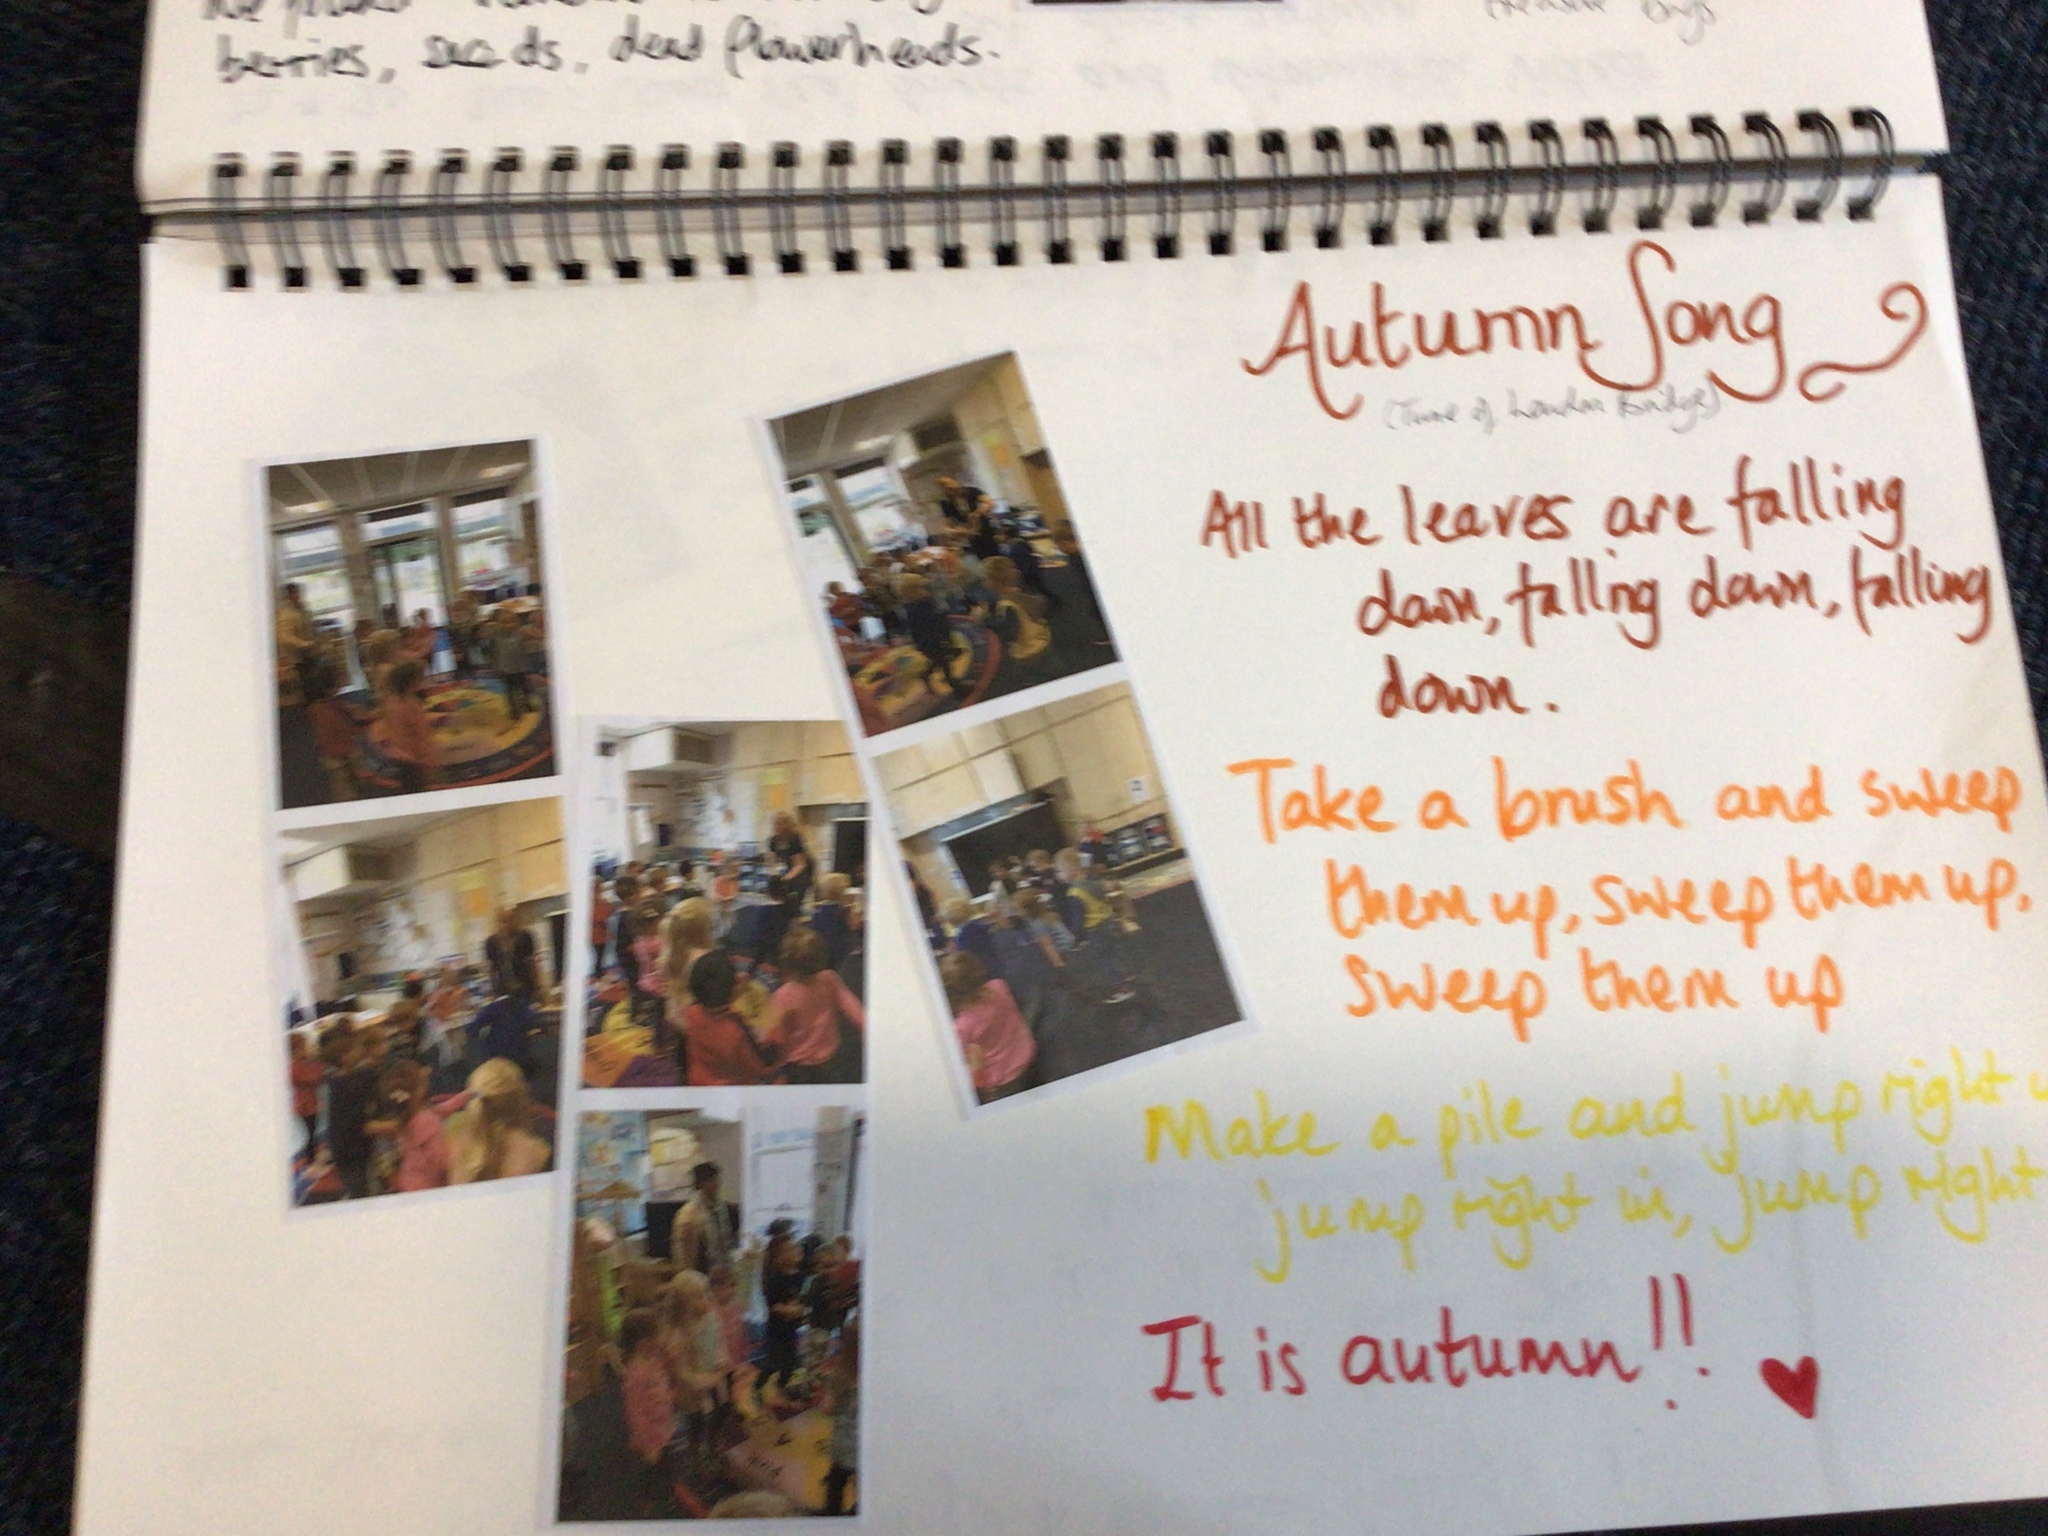 berries, seeds, dead flowerheads.
Autumn Song
(Tune of London Bridge)
All the leaves are falling
down, falling down, falling
down.
Take a brush and sweep
them up, sweep them up,
sweep them up
Make a pile and jump right
jump right in, jump right
It is autumn!!